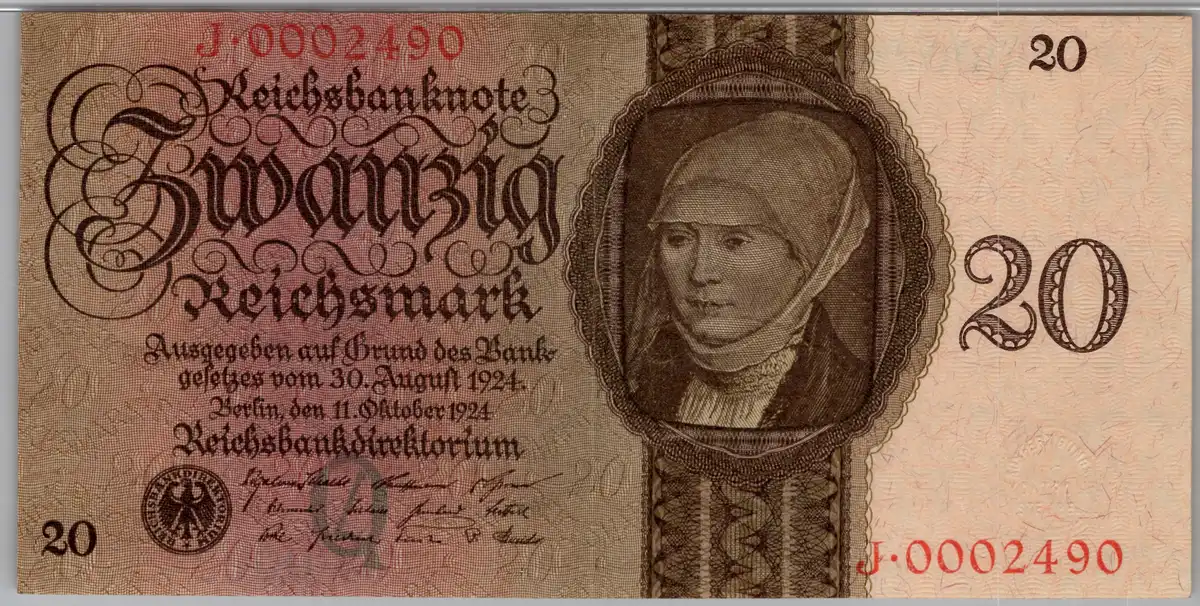 J·0002490
20
Reichsbanknote
Zwanzig
Reichsmark
20
Ausgegeben auf Grund des Bank-
gesetzes vom 30. August 1924.
Berlin, den 11. Oktober 1924
Reichsbankdirektorium
REICHSBANKDIREKTORIUM
20
20
J·0002490